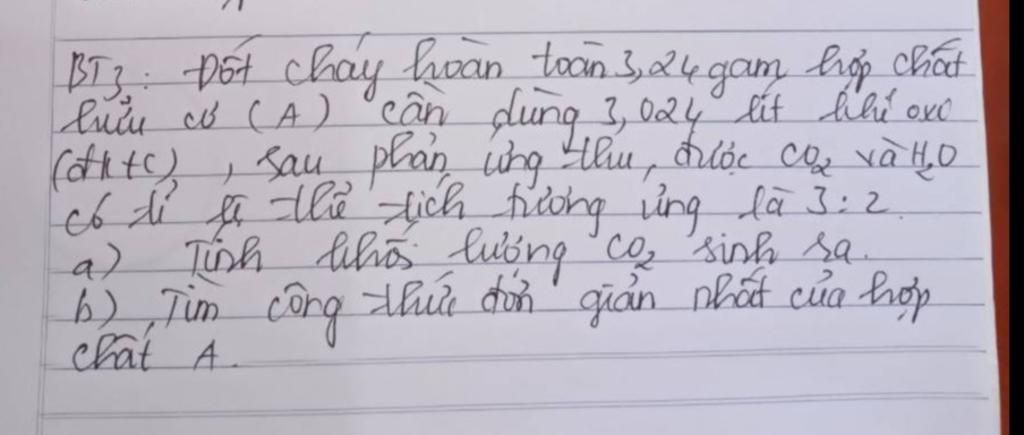 BT3: Đốt cháy hoàn toàn 3,24 gam hợp chất
hữu cơ (A) cần dùng 3,024 lít khí oxo
(đktc), sau phản ứng thu được CO2 và H2O
có tỉ lệ thể tích tương ứng là 3:2.
a) Tính khối lượng CO2 sinh ra.
b) Tìm công thức đơn giản nhất của hợp
chất A.